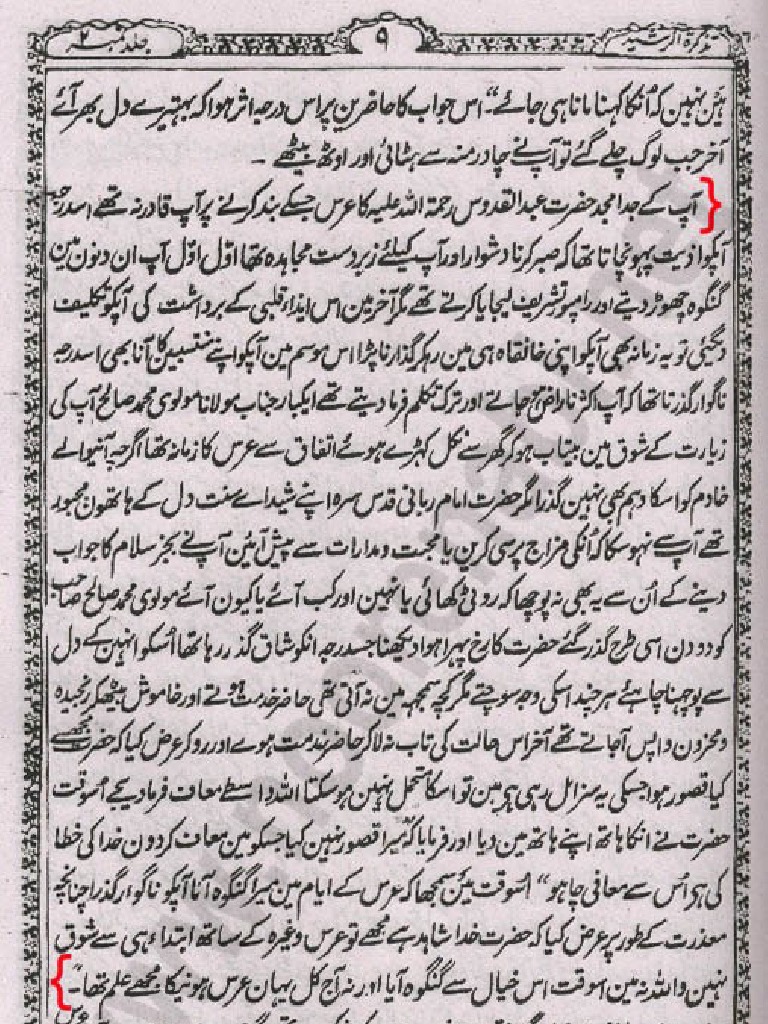 تذکرۃ الرشید ۹ جلد نمبر ۲
ہیئن نہین کہ اُنکا کہنا مانا ہی جائے۔“ اس جواب کا حاضرین پر اس درجہ اثر ہوا کہ بہتیرے دل بھر آئے
آخر جب لوگ چلے گئے تو آپنے چادر منہ سے ہٹائی اور اوٹھ بیٹھے ۔
آپ کے جد امجد حضرت عبدالقدوس رحمۃ اللہ علیہ کا عرس جسکے بند کرنے پر آپ قادر نہ تھے اسدرجہ
آپکو اذیت پہونچاتا تھا کہ صبر کرنا دشوار اور آپ کیلئے زبردست مجاہدہ تھا اوّل اوّل آپ ان دنون مین
گنگوہ چھوڑ دیتے اور رامپور تشریف لیجایا کرتے تھے مگر آخر مین اس ایذاء قلبی کے برداشت کی آپکو تکلیف
دیگئی تو یہ زمانہ بھی آپکو اپنی خانقاہ ہی مین رہکر گذارنا پڑا اس موسم مین آپکو اپنے منتسبین کا آنا بھی اسدرجہ
ناگوار گذرتا تھا کہ آپ اکثر ناراض ہو جاتے اور ترک تکلم فرما دیتے تھے ایکبار جناب مولانا مولوی محمد صالح آپ کی
زیارت کے شوق مین بیتاب ہو کر گھر سے نکل کھڑے ہوئے اتفاق سے عرس کا زمانہ تھا اگرچہ آنیوالے
خادم کو اسکا وہم بھی نہین گذرا مگر حضرت امام ربانی قدس سرہ اپنے شیداے سنت دل کے ہاتھون مجبور
تھے آپ سے نہو سکا کہ اُنکی مزاج پرسی کرین یا محبت و مدارات سے پیش آئین آپنے بجز سلام کا جواب
دینے کے اُن سے یہ بھی نہ پوچھا کہ روٹی کھائی یا نہین اور کب آئے یا کیون آئے مولوی محمد صالح صاحب
کو دو دن اسی طرح گذر گئے حضرت کا رخ پھرا ہوا دیکھنا جسدرجہ انکو شاق گذر رہا تھا اُسکو انہین کے دل
سے پوچھنا چاہئے ہر چند اسکی وجہ سوچتے مگر کچھ سمجھ مین نہ آتی تھی حاضر خدمت ہوتے اور خاموش بیٹھکر رنجیدہ
و محزون واپس آجاتے تھے آخر اس حالت کی تاب نہ لاکر حاضر خدمت ہوے اور رو کر عرض کیا کہ حضرت مجھسے
کیا قصور ہوا جسکی یہ سزا مل رہی ہی مین تو اسکا متحمل نہین ہو سکتا اللہ واسطے معاف فرما دیجے اسوقت
حضرت نے انکا ہاتھ اپنے ہاتھ مین دیا اور فرمایا کہ میرا قصور نہین کیا جسکو مین معاف کردون خدا کی خطا
کی ہی اُس سے معافی چاہو“ اسوقت مین سمجھا کہ عرس کے ایام مین میرا گنگوہ آنا آپکو ناگوار گذرا چنانچہ
معذرت کے طور پر عرض کیا کہ حضرت خدا شاہد ہے مجھے تو عرس وغیرہ کے ساتھ ابتداء ہی سے شوق
نہین واللہ نہ مین اسوقت اس خیال سے گنگوہ آیا اور نہ آج کل یہان عرس ہونیکا مجھے علم تھا۔“